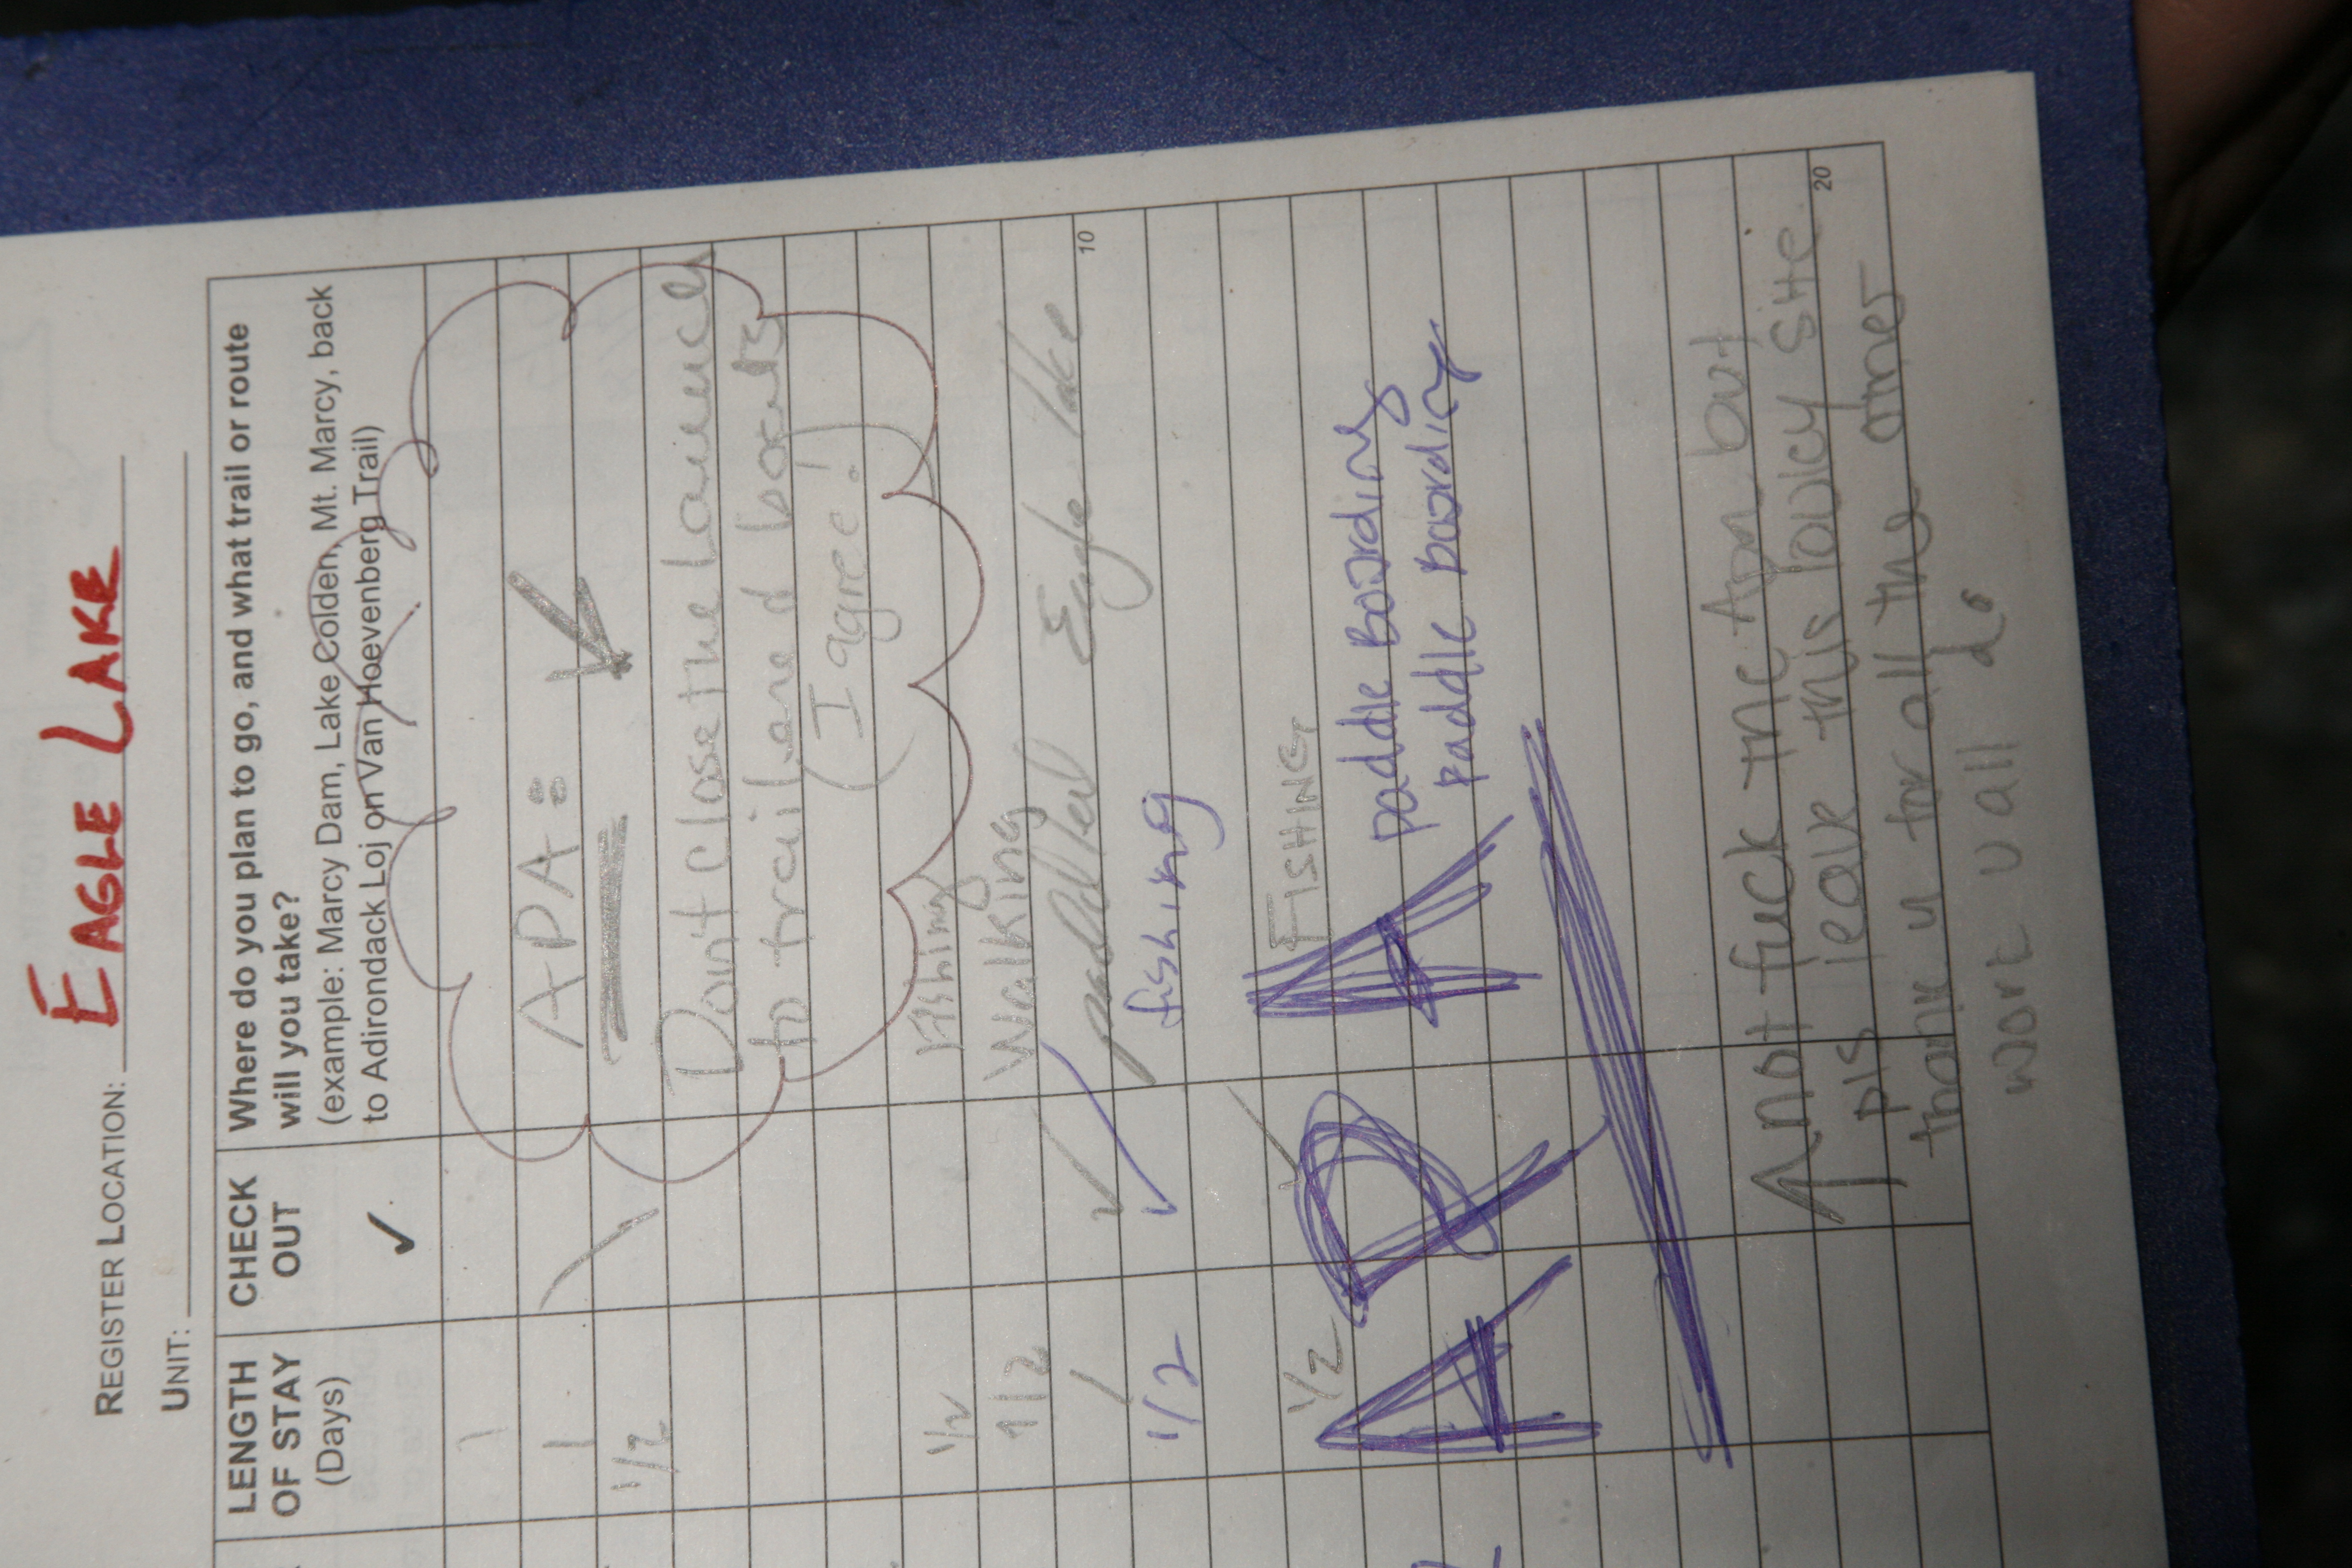 REGISTER LOCATION: EAGLE LAKE
UNIT:
LENGTH OF STAY (Days)
CHECK OUT
✓
Where do you plan to go, and what trail or route
will you take?
(example: Marcy Dam, Lake Colden, Mt. Marcy, back
to Adirondack Loj on Van Hoevenberg Trail)
1
APA:
1/2
Don't close the Launch
to trailered boats
(I agree!)
1/2 Fishing
1/2 walking
1 ✓ paddled Eagle lake
10
1/2 ✓ fishing
1/2 FISHING
paddle Boarding
paddle boarding
APA
not fuck the Apa but
pls leave this
site
20
thank u for all the other
work u all do